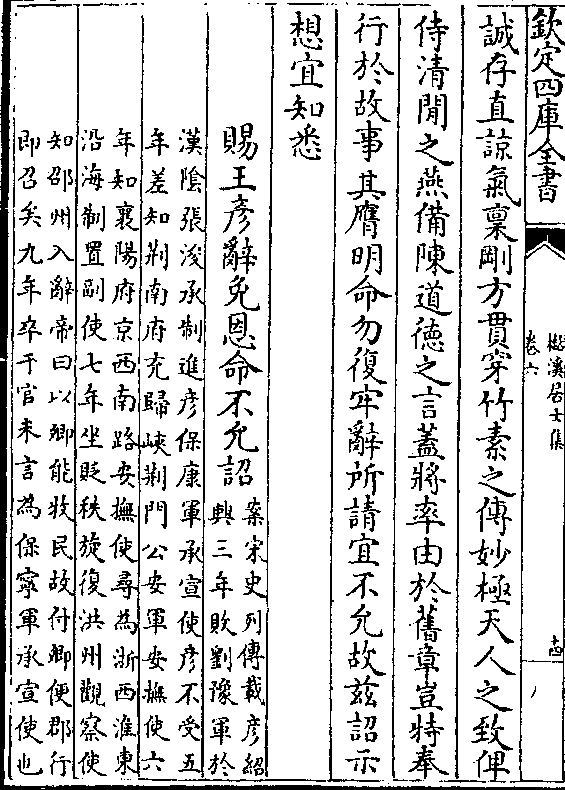 欽定四庫全書
栂溪居士集
卷六
十四
誠存直諒氣稟剛方貫穿竹素之傳妙極天人之致俾
侍清閒之燕備陳道德之言蓋將率由於舊章豈特奉
行於故事其膺明命勿復牢辭所請宜不允故兹詔示
想宜知悉
賜王彥辭免恩命不允詔
案宋史列傳載彥紹
興三年敗劉豫軍於
漢陰張浚承制進彥保康軍承宣使彥不受五
年差知荆南府充歸峽荆門公安軍安撫使六
年知襄陽府京西南路安撫使尋為浙西淮東
沿海制置副使七年坐貶秩旋復洪州觀察使
知邵州入辭帝曰以卿能牧民故付卿便郡行
即召矣九年卒于官未言為保寧軍承宣使也